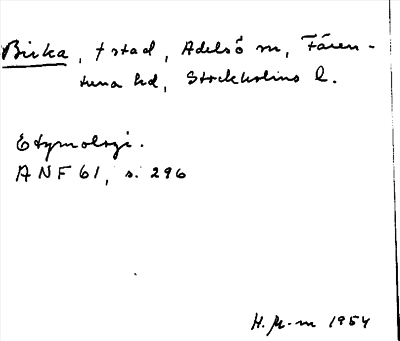 Birka, † stad, Adelsö sn, Fären-
tuna hd, Stockholms l.
Etymologi.
ANF 61, s. 296
H. M-m 1954